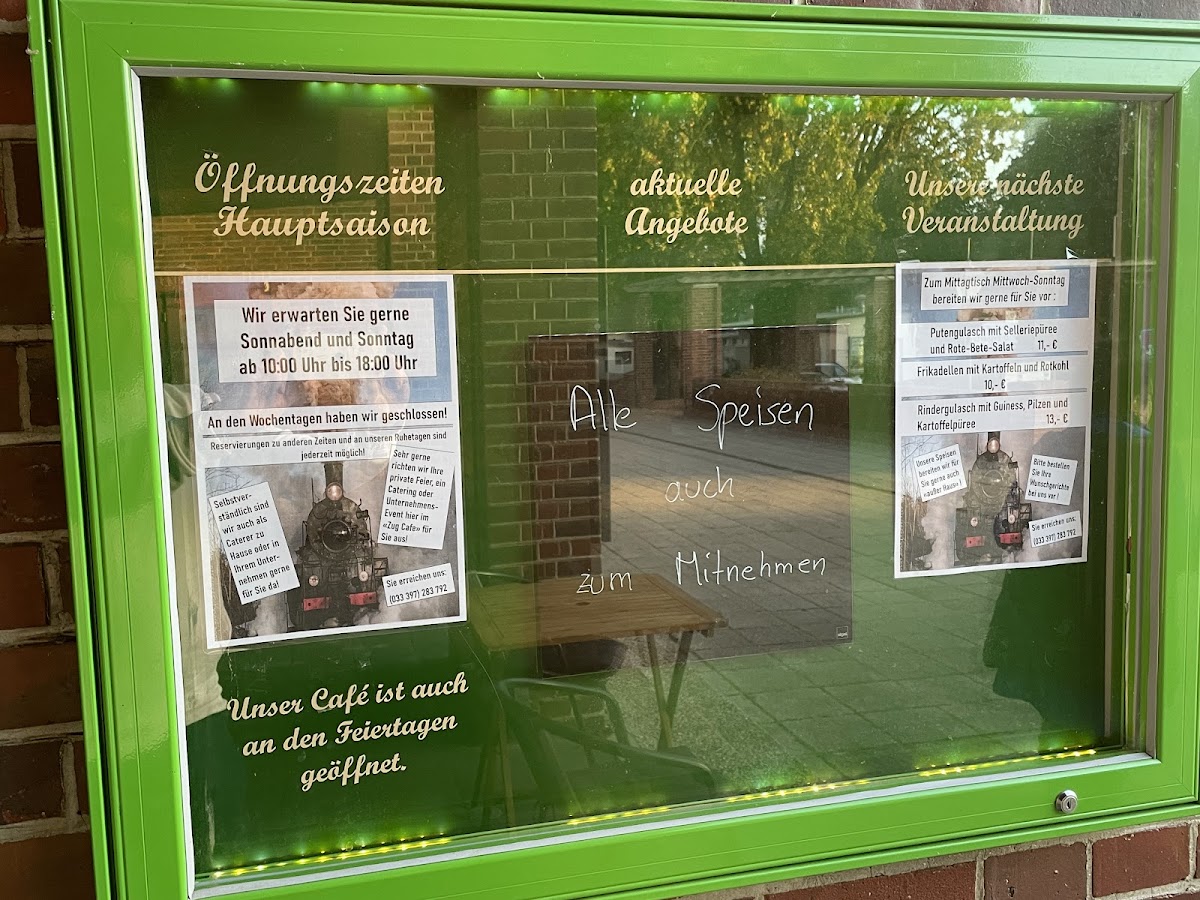 Öffnungszeiten
Hauptsaison
Wir erwarten Sie gerne
Sonnabend und Sonntag
ab 10:00 Uhr bis 18:00 Uhr
An den Wochentagen haben wir geschlossen!
Reservierungen zu anderen Zeiten und an unseren Ruhetagen sind
jederzeit möglich!
Selbstver-
ständlich sind
wir auch als
Caterer zu
Hause oder in
Ihrem Unter-
nehmen gerne
für Sie da!
Sehr gerne
richten wir Ihre
private Feier, ein
Catering oder
Unternehmens-
Event hier im
«Zug Cafe» für
Sie aus!
Sie erreichen uns:
(033 397) 283 792
Unser Café ist auch
an den Feiertagen
geöffnet.
aktuelle
Angebote
Alle Speisen
auch
zum Mitnehmen
Unsere nächste
Veranstaltung
Zum Mittagtisch Mittwoch-Sonntag
bereiten wir gerne für Sie vor :
Putengulasch mit Selleriepüree
und Rote-Bete-Salat 11,- €
Frikadellen mit Kartoffeln und Rotkohl
10,- €
Rindergulasch mit Guiness, Pilzen und
Kartoffelpüree 13,- €
Unsere Speisen
bereiten wir für
Sie gerne auch
«außer Haus» !
Bitte bestellen
Sie Ihre
Wunschgerichte
bei uns vor !
Sie erreichen uns:
(033 397) 283 792